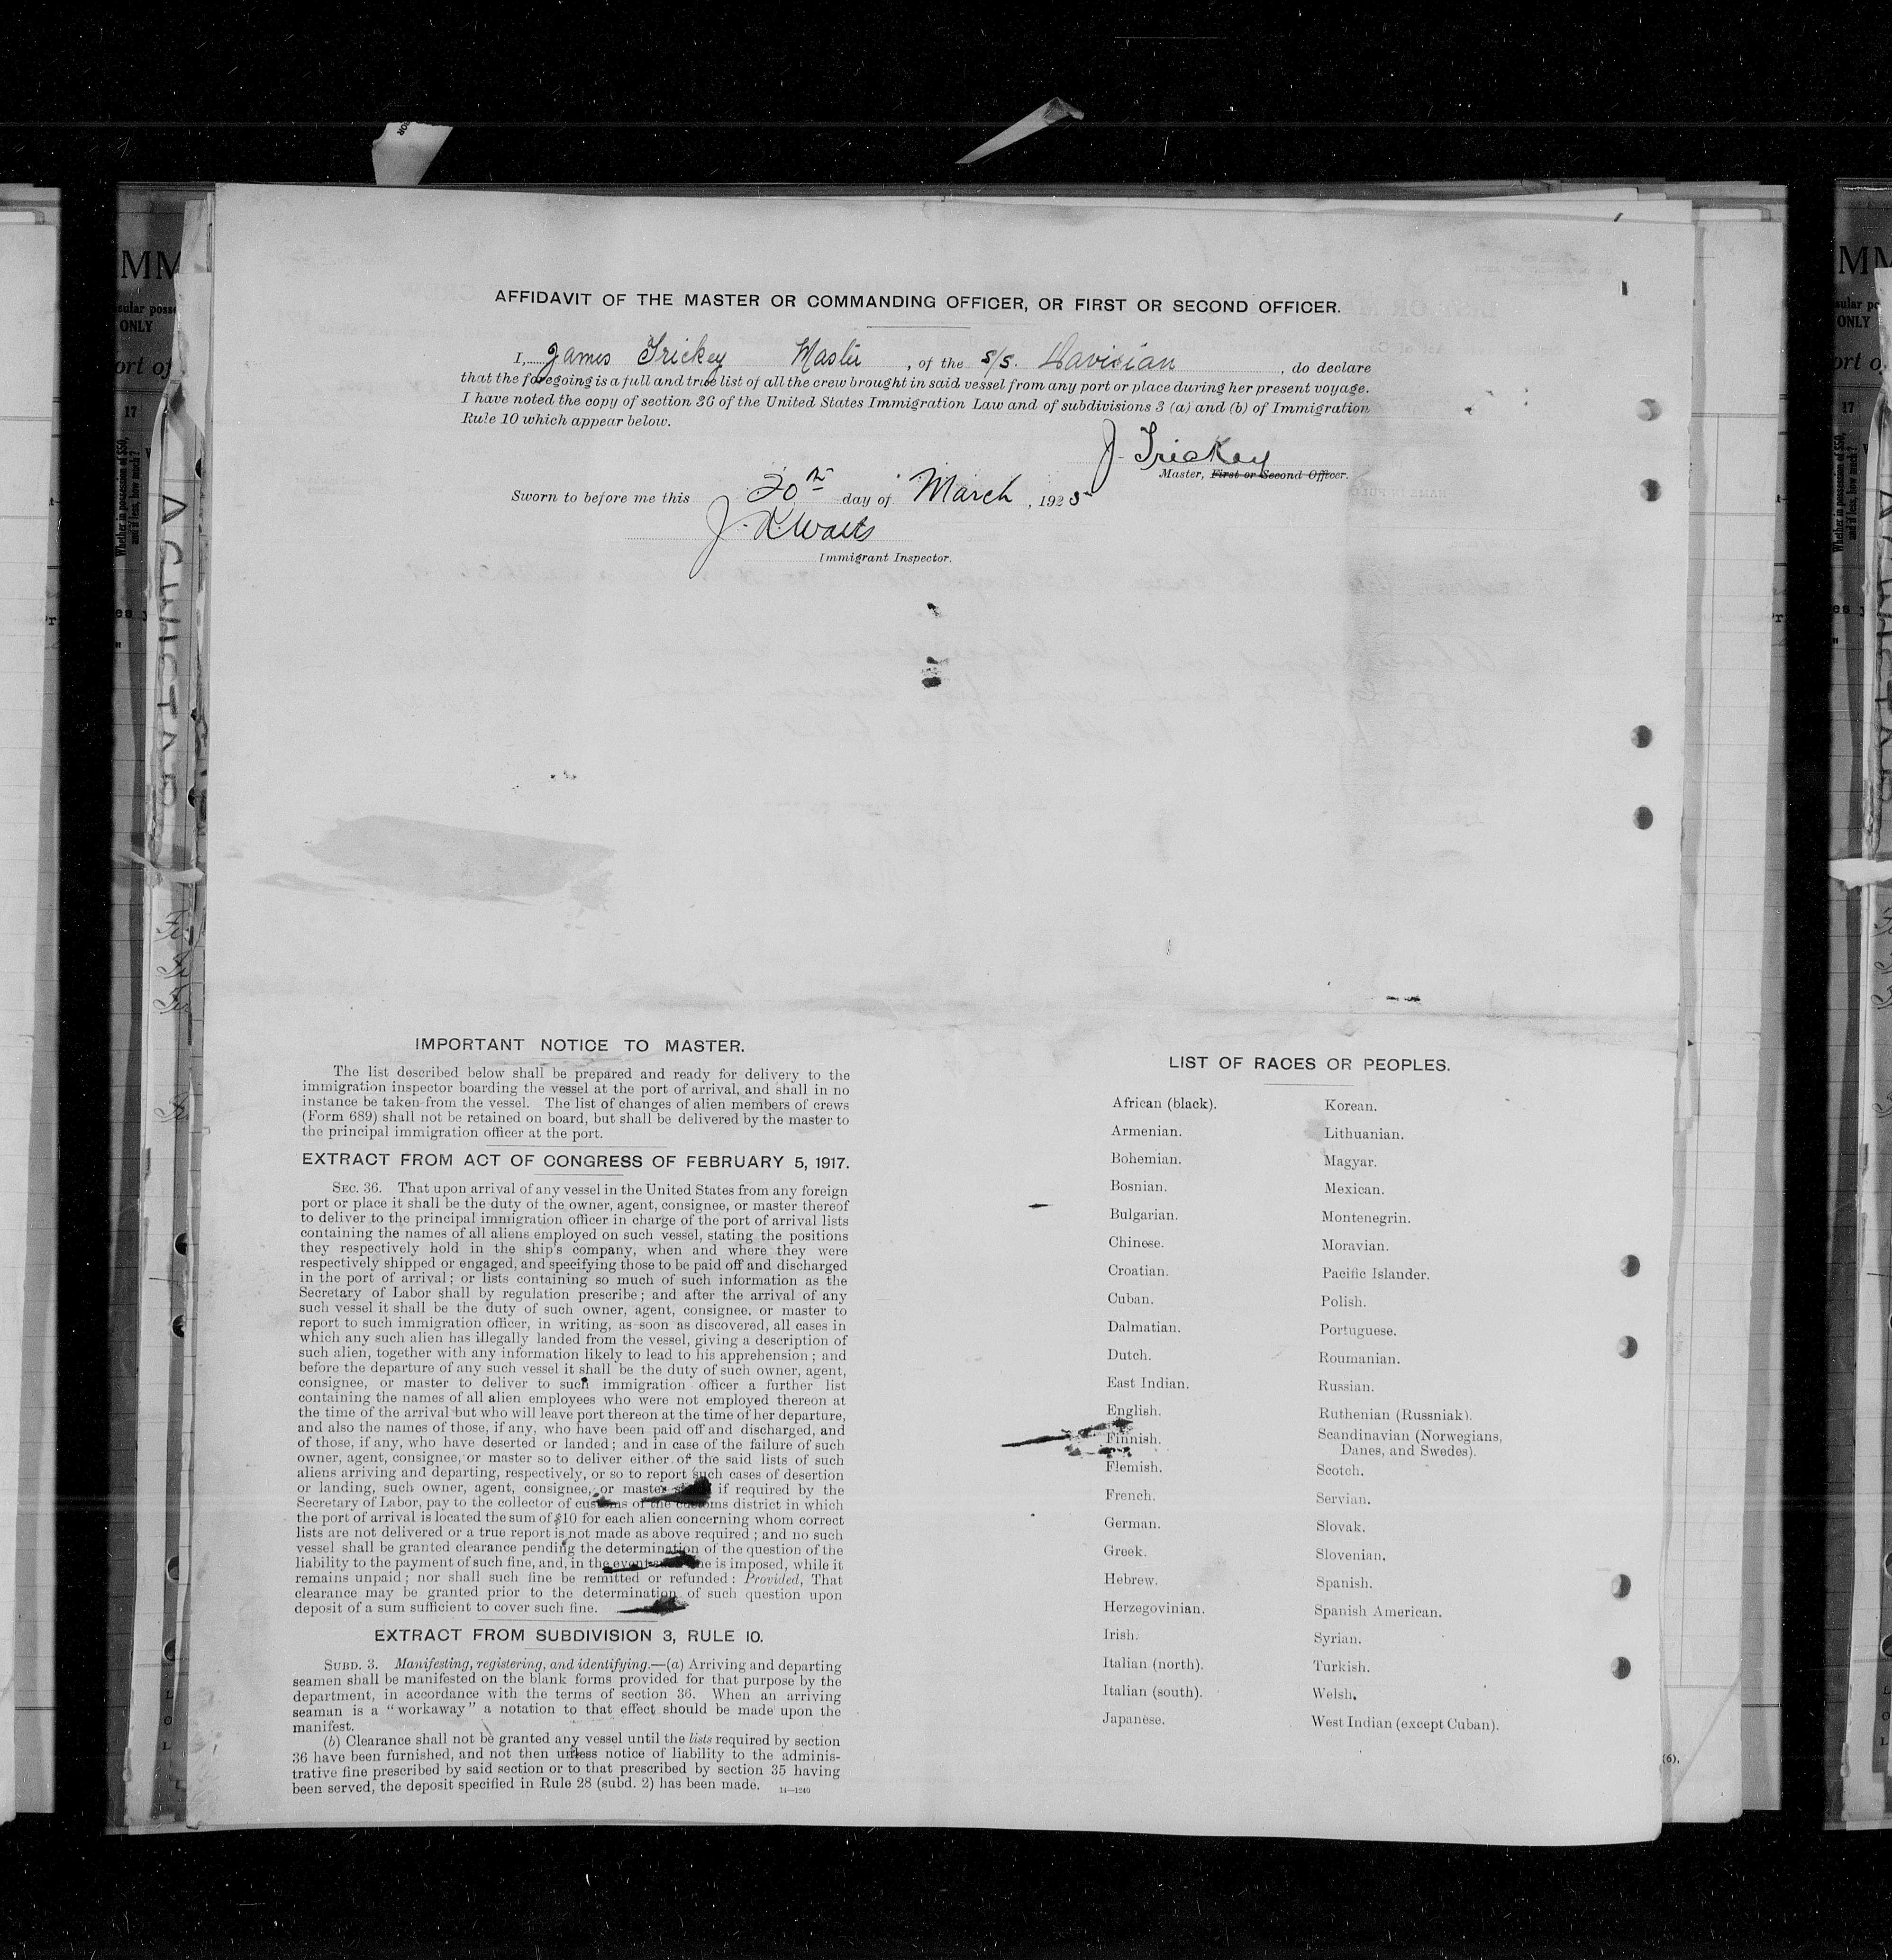 AFFIDAVIT OF THE MASTER OR COMMANDING OFFICER, OR FIRST OR SECOND OFFICER.
I, James Trickey Master, of the s/s. Davisian, do declare
that the foregoing is a full and true list of all the crew brought in said vessel from any port or place during her present voyage.
I have noted the copy of section 36 of the United States Immigration Law and of subdivisions 3 (a) and (b) of Immigration
Rule 10 which appear below.
J. Trickey
Master, First or Second Officer.
Sworn to before me this 20th day of March, 1925
Immigrant Inspector.
IMPORTANT NOTICE TO MASTER.
The list described below shall be prepared and ready for delivery to the
immigration inspector boarding the vessel at the port of arrival, and shall in no
instance be taken from the vessel. The list of changes of alien members of crews
(Form 689) shall not be retained on board, but shall be delivered by the master to
the principal immigration officer at the port.
EXTRACT FROM ACT OF CONGRESS OF FEBRUARY 5, 1917.
SEC. 36. That upon arrival of any vessel in the United States from any foreign
port or place it shall be the duty of the owner, agent, consignee, or master thereof
to deliver to the principal immigration officer in charge of the port of arrival lists
containing the names of all aliens employed on such vessel, stating the positions
they respectively hold in the ship's company, when and where they were
respectively shipped or engaged, and specifying those to be paid off and discharged
in the port of arrival; or lists containing so much of such information as the
Secretary of Labor shall by regulation prescribe; and after the arrival of any
such vessel it shall be the duty of such owner, agent, consignee, or master to
report to such immigration officer, in writing, as soon as discovered, all cases in
which any such alien has illegally landed from the vessel, giving a description of
such alien, together with any information likely to lead to his apprehension; and
before the departure of any such vessel it shall be the duty of such owner, agent,
consignee, or master to deliver to such immigration officer a further list
containing the names of all alien employees who were not employed thereon at
the time of the arrival but who will leave port thereon at the time of her departure,
and also the names of those, if any, who have been paid off and discharged, and
of those, if any, who have deserted or landed; and in case of the failure of such
owner, agent, consignee, or master so to deliver either of the said lists of such
aliens arriving and departing, respectively, or so to report such cases of desertion
or landing, such owner, agent, consignee, or master shall if required by the
Secretary of Labor, pay to the collector of customs of the customs district in which
the port of arrival is located the sum of $10 for each alien concerning whom correct
lists are not delivered or a true report is not made as above required; and no such
vessel shall be granted clearance pending the determination of the question of the
liability to the payment of such fine, and, in the event such fine is imposed, while it
remains unpaid; nor shall such fine be remitted or refunded: Provided, That
clearance may be granted prior to the determination of such question upon
deposit of a sum sufficient to cover such fine.
EXTRACT FROM SUBDIVISION 3, RULE 10.
SUBD. 3. Manifesting, registering, and identifying.—(a) Arriving and departing
seamen shall be manifested on the blank forms provided for that purpose by the
department, in accordance with the terms of section 36. When an arriving
seaman is a "workaway" a notation to that effect should be made upon the
manifest.
(b) Clearance shall not be granted any vessel until the lists required by section
36 have been furnished, and not then unless notice of liability to the adminis-
trative fine prescribed by said section or to that prescribed by section 35 having
been served, the deposit specified in Rule 28 (subd. 2) has been made. 14—1240
LIST OF RACES OR PEOPLES.
African (black).
Armenian.
Bohemian.
Bosnian.
Bulgarian.
Chinese.
Croatian.
Cuban.
Dalmatian.
Dutch.
East Indian.
English.
Finnish.
Flemish.
French.
German.
Greek.
Hebrew.
Herzegovinian.
Irish.
Italian (north).
Italian (south).
Japanese.
Korean.
Lithuanian.
Magyar.
Mexican.
Montenegrin.
Moravian.
Pacific Islander.
Polish.
Portuguese.
Roumanian.
Russian.
Ruthenian (Russniak).
Scandinavian (Norwegians,
Danes, and Swedes).
Scotch.
Servian.
Slovak.
Slovenian.
Spanish.
Spanish American.
Syrian.
Turkish.
Welsh.
West Indian (except Cuban).